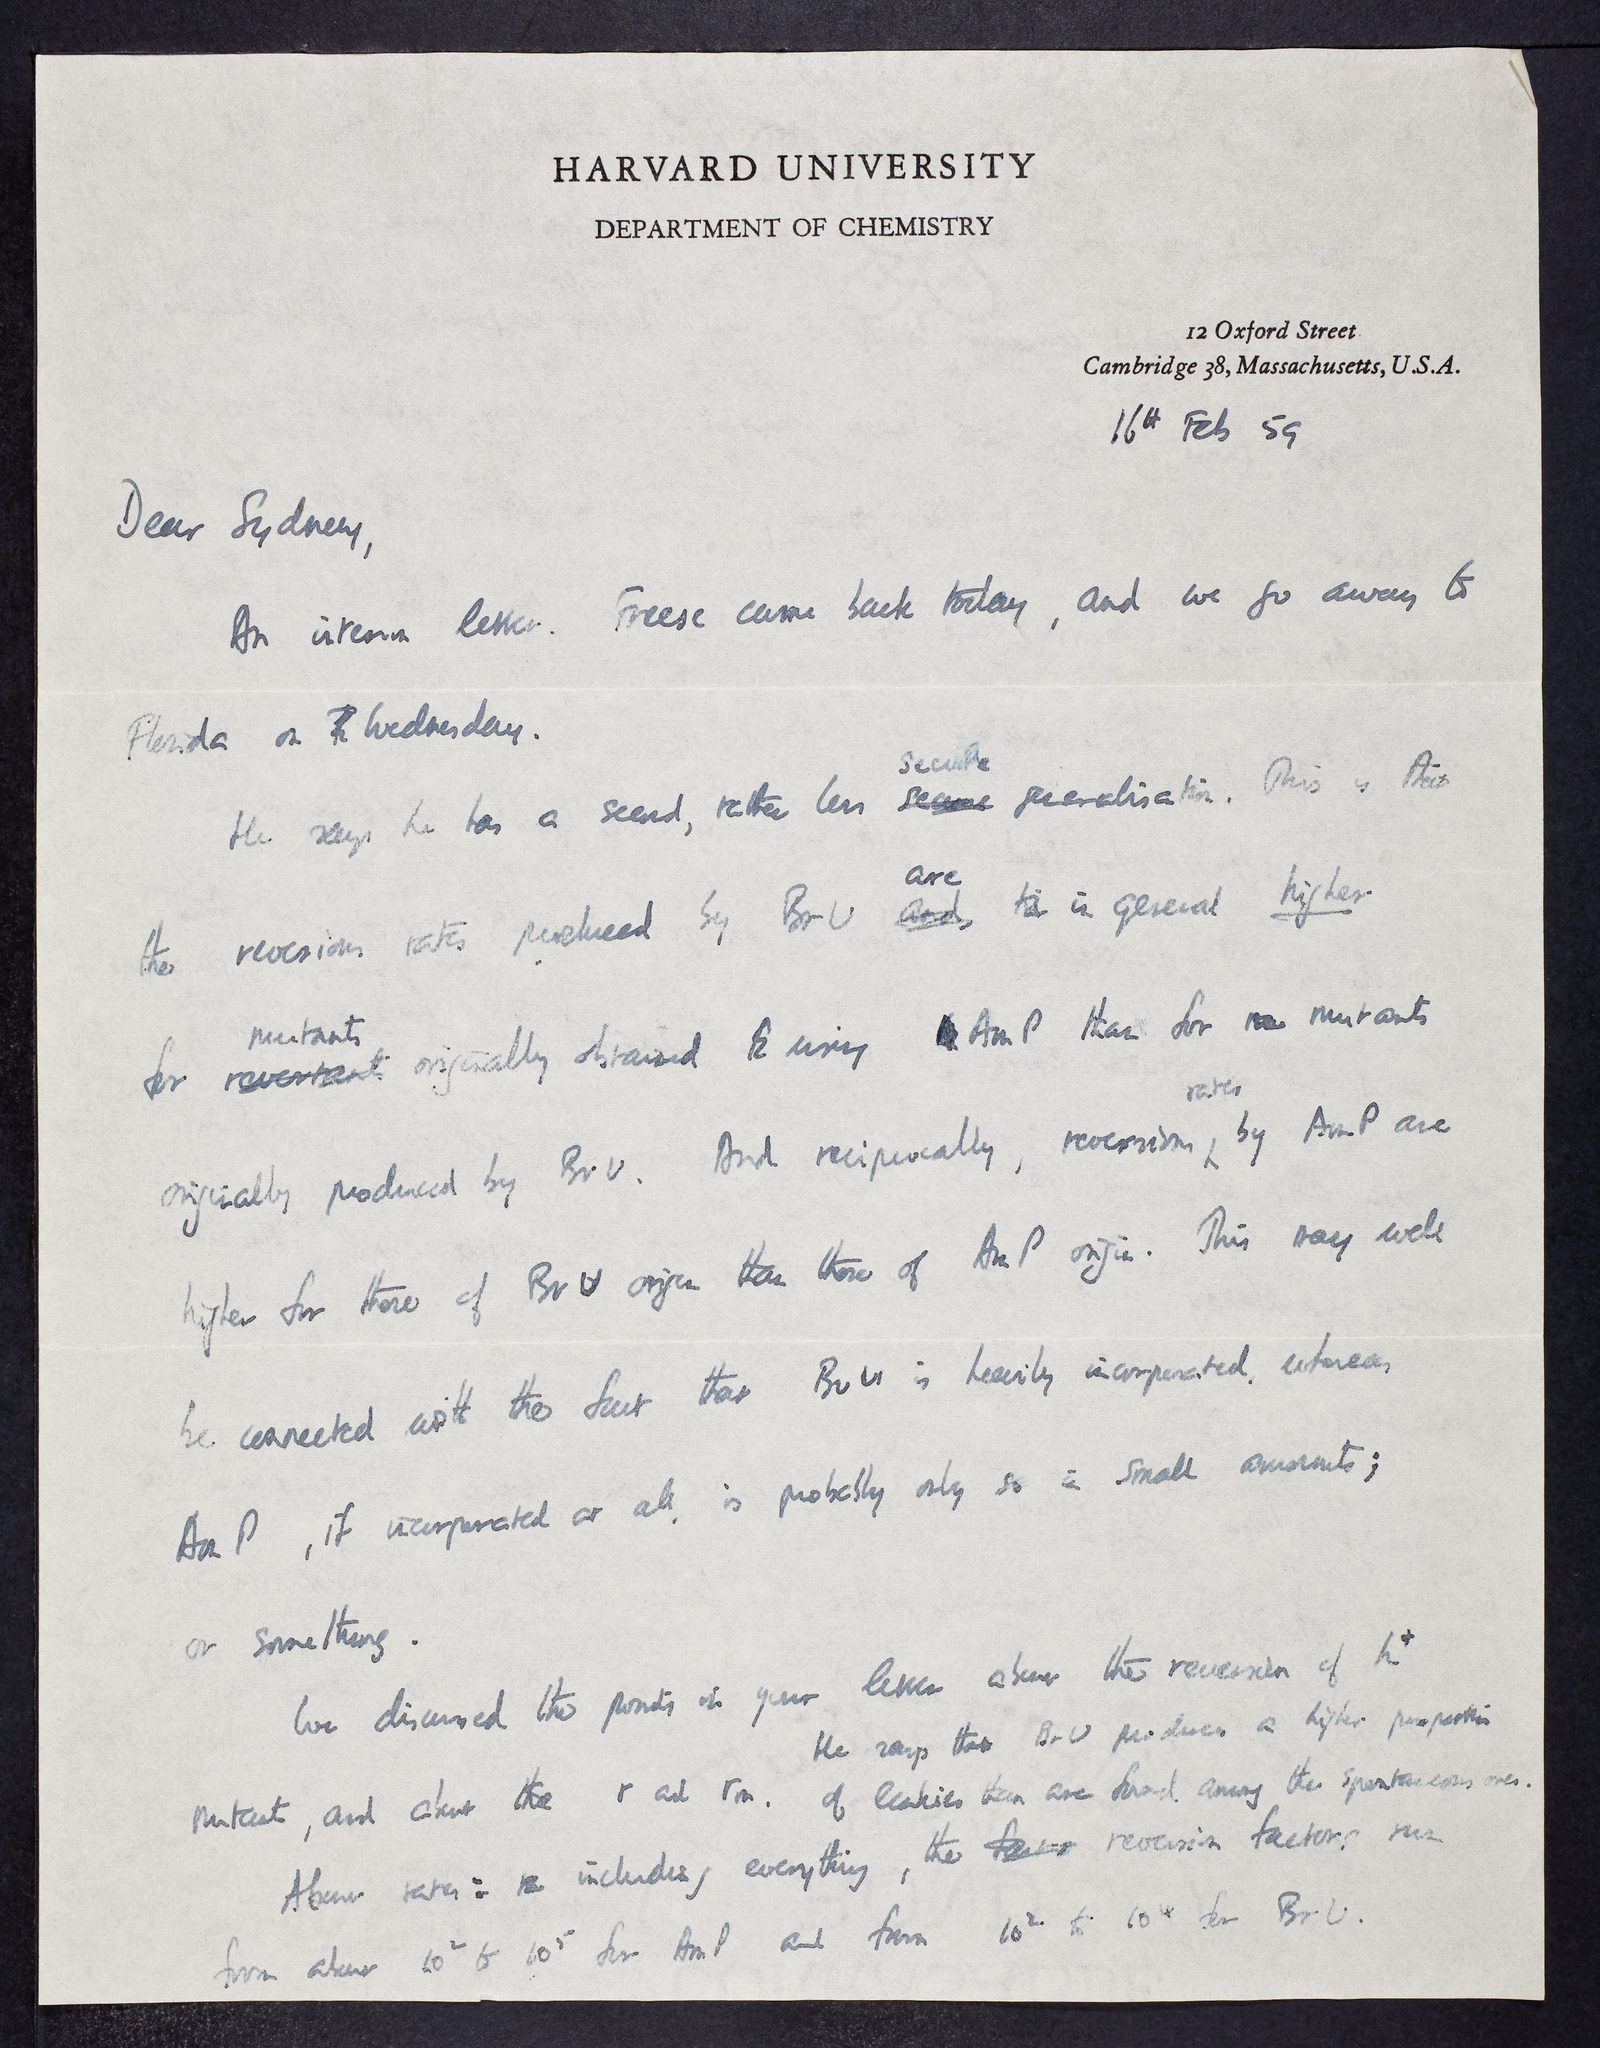 HARVARD UNIVERSITY
DEPARTMENT OF CHEMISTRY
12 Oxford Street
Cambridge 38, Massachusetts, U.S.A.
16th Feb 59
Dear Sydney,
An interim letter. Freese came back today, and we go away to
Florida on Wednesday.
secure
He says he has a second, rather less secure generalisation. This is that
are
the reversion rates produced by BrU and in general higher
mutants
for revertant originally obtained using AmP than for mutants
rates
originally produced by BrU. And reciprocally, reversion by AmP are
higher for those of BrU origin than those of AmP origin. This may well
be connected with the fact that BrU is heavily incorporated, whereas
AmP, if incorporated at all, is probably only so in small amounts;
or something.
We discussed the points in your letter about the reversion of h+
He says that BrU produces a higher proportion
mutant, and about the r and rm. of leakies than are found among the spontaneous ones.
About rates: including everything, the factor reversion factors run
from about 10² to 10⁵ for AmP and from 10² to 10⁴ for BrU.